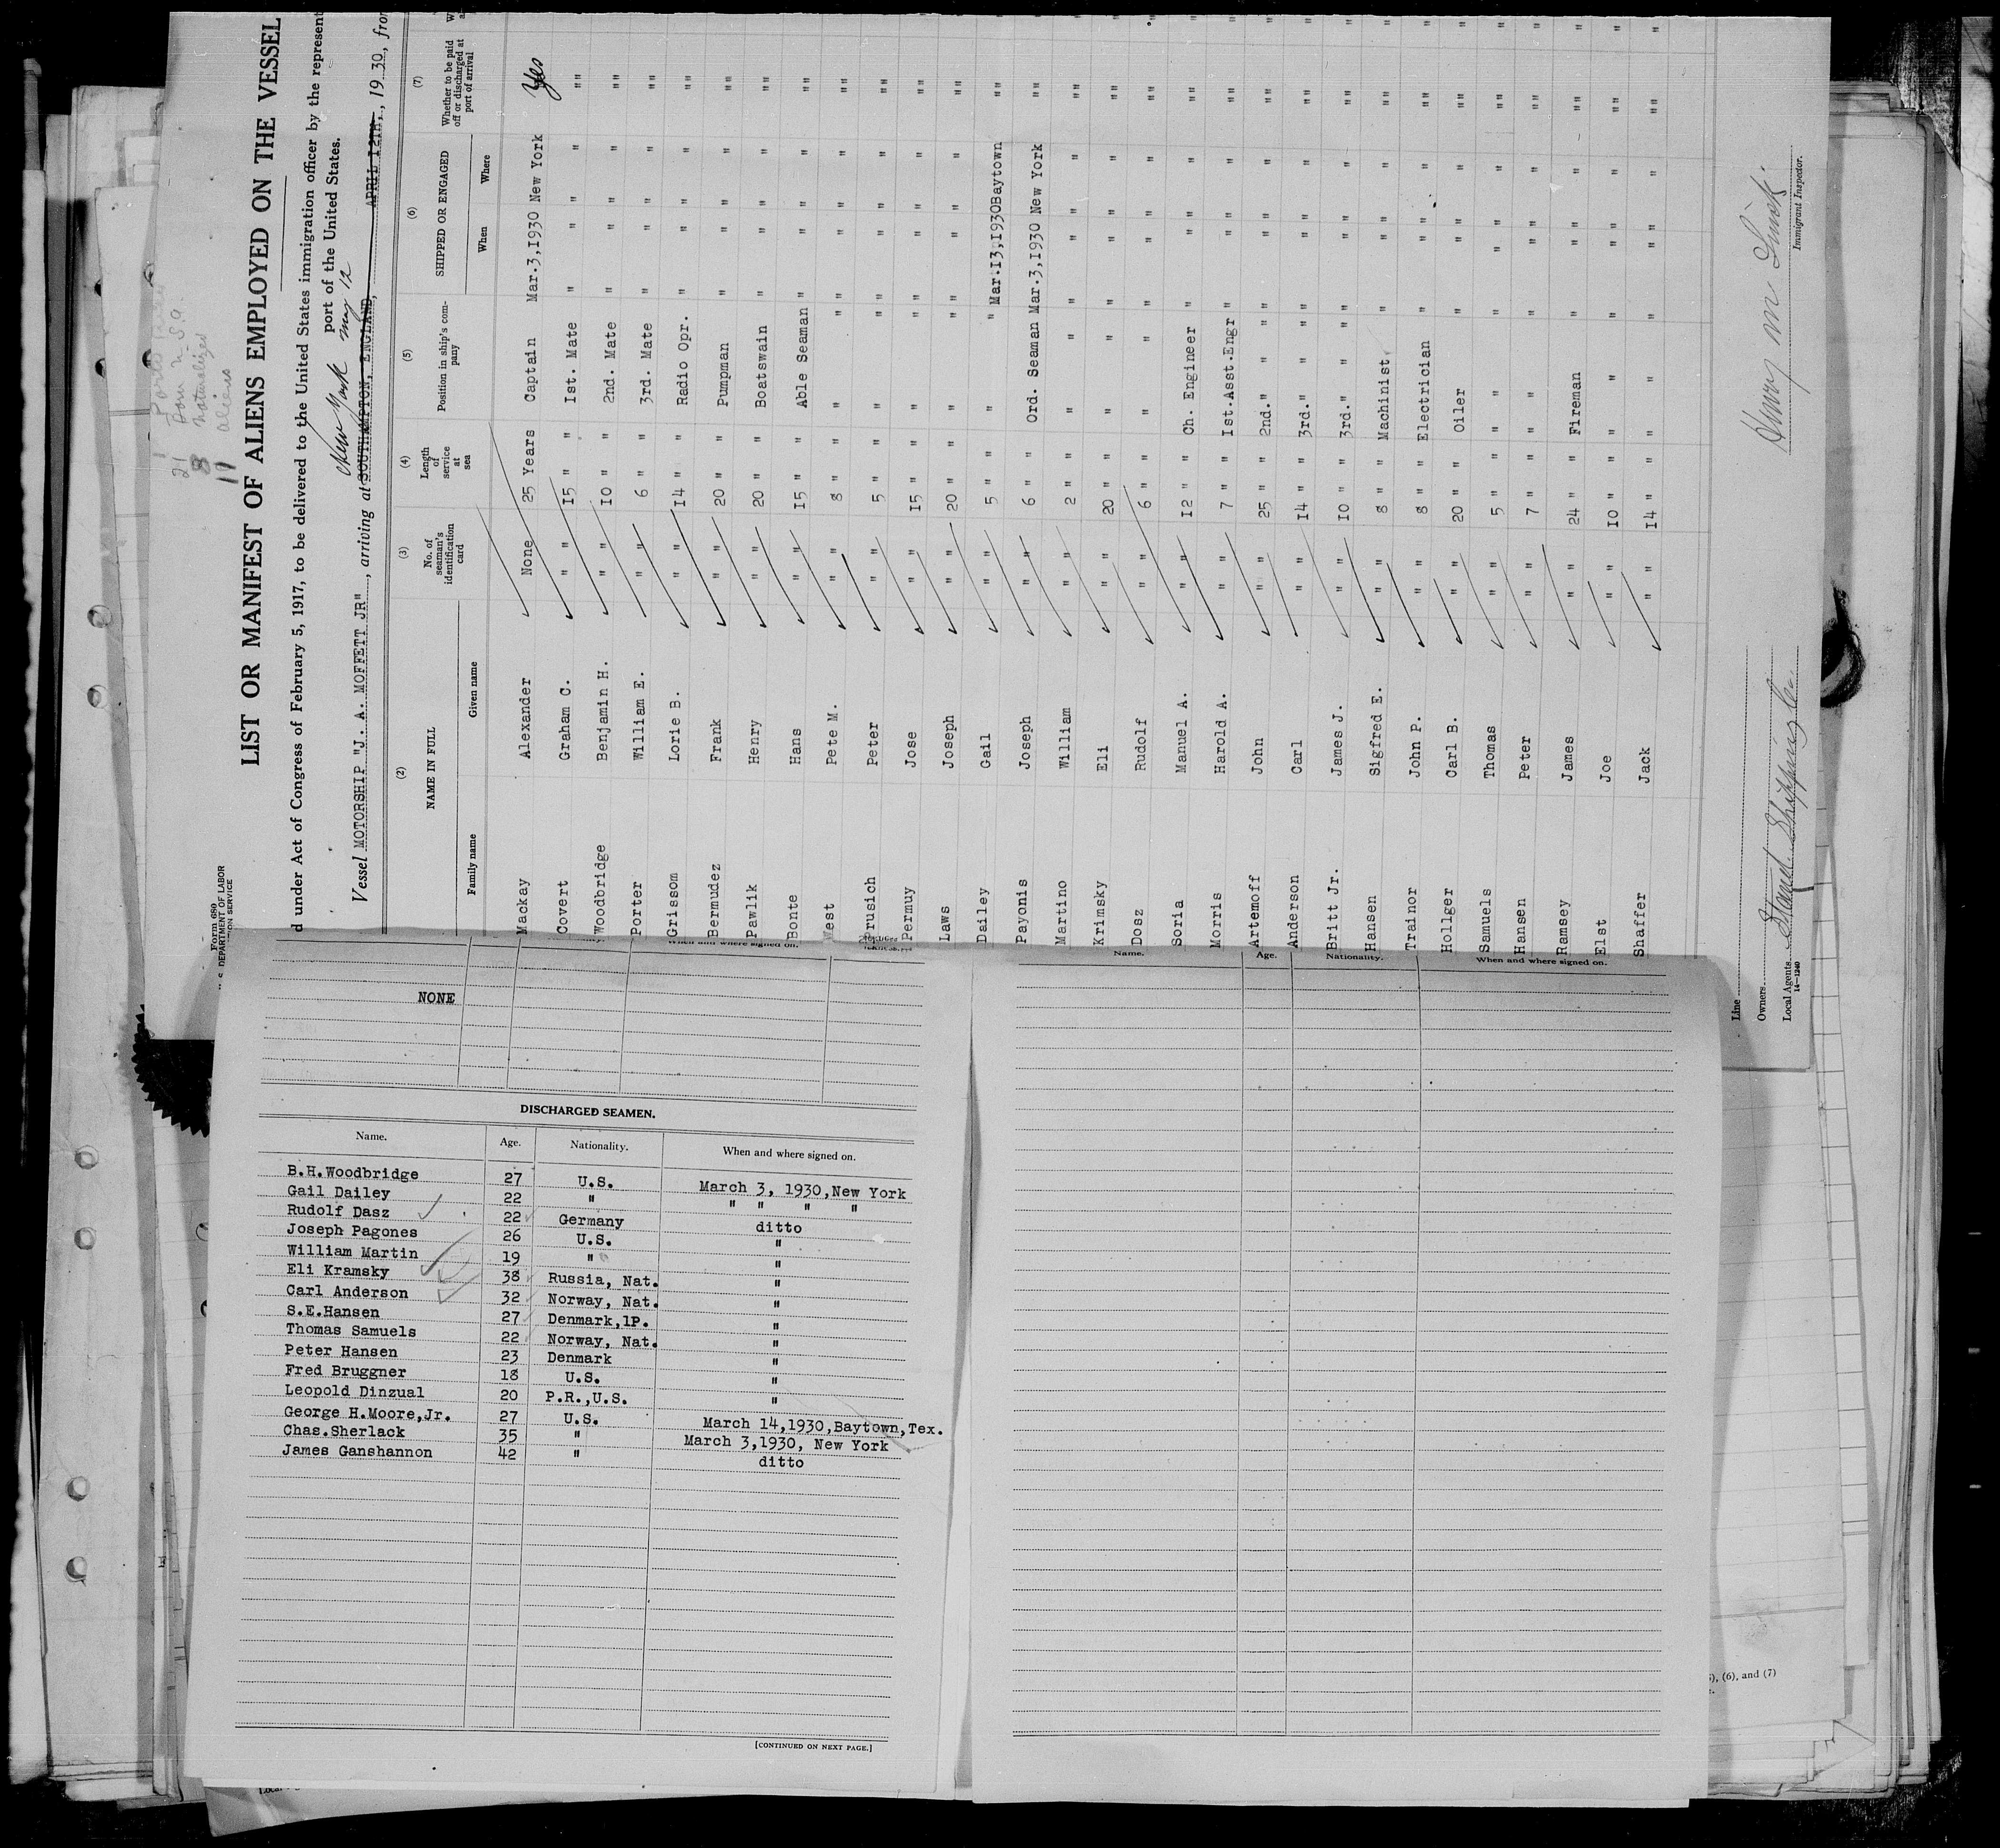 Form 680
U. S. DEPARTMENT OF LABOR
ION SERVICE
21 Born U.S.A.
8 naturalized
11 aliens
LIST OR MANIFEST OF ALIENS EMPLOYED ON THE VESSEL
d under Act of Congress of February 5, 1917, to be delivered to the United States immigration officer by the represent
port of the United States.
New York May 12
Vessel MOTORSHIP "J. A. MOFFETT JR", arriving at SOUTHAMPTON, ENGLAND, APRIL 12TH, 1930, from
(2) (3) (4) (5) (6) (7)
NAME IN FULL No. of seaman's identification card Length of service at sea Position in ship's company SHIPPED OR ENGAGED Whether to be paid off or discharged at port of arrival
Family name Given name When Where
Mackay Alexander None 25 Years Captain Mar.3,1930 New York Yes
Covert Graham C. " " 15 " " 1st. Mate " " " " ""
Woodbridge Benjamin H. " " 10 " " 2nd. Mate " " " " ""
Porter William E. " " 6 " " 3rd. Mate " " " " ""
Grissom Lorie B. " " 14 " " Radio Opr. " " " " ""
Bermudez Frank " " 20 " " Pumpman " " " " ""
Pawlik Henry " " 20 " " Boatswain " " " " ""
Bonte Hans " " 15 " " Able Seaman " " " " ""
West Pete M. " " 8 " " " " " " ""
Prusich Peter " " 5 " " " " " " " ""
Permuy Jose " " 15 " " " " " " " ""
Laws Joseph " " 20 " " " " " " " ""
Dailey Gail " " 5 " " " " Mar.13,1930 Baytown ""
Payonis Joseph " " 6 " " Ord. Seaman Mar.3,1930 New York ""
Martino William " " 2 " " " " " " " " ""
Krimsky Eli " " 20 " " " " " " " " ""
Dosz Rudolf " " 6 " " " " " " " " ""
Soria Manuel A. " " 12 " " Ch. Engineer " " " " ""
Morris Harold A. " " 7 " " 1st.Asst.Engr " " " " ""
Artemoff John " " 25 " " 2nd." " " " " " " ""
Anderson Carl " " 14 " " 3rd." " " " " " " ""
Britt Jr. James J. " " 10 " " 3rd." " " " " " " ""
Hansen Sigfred E. " " 8 " " Machinist " " " " ""
Trainor John P. " " 8 " " Electrician " " " " ""
Hollger Carl B. " " 20 " " Oiler " " " " ""
Samuels Thomas " " 5 " " " " " " " " ""
Hansen Peter " " 7 " " " " " " " " ""
Ramsey James " " 24 " " Fireman " " " " ""
Elst Joe " " 10 " " " " " " " " ""
Shaffer Jack " " 14 " " " " " " " " ""
Line
Owners
Local Agents Stand. Shipping Co.
14—1240
Immigrant Inspector.
When and where signed on.
NONE
DISCHARGED SEAMEN.
Name. Age. Nationality. When and where signed on.
B.H.Woodbridge 27 U.S. March 3, 1930,New York
Gail Dailey 22 " " " " "
Rudolf Dasz 22 Germany ditto
Joseph Pagones 26 U.S. "
William Martin 19 " "
Eli Kramsky 38 Russia, Nat. "
Carl Anderson 32 Norway, Nat. "
S.E.Hansen 27 Denmark,1P. "
Thomas Samuels 22 Norway, Nat. "
Peter Hansen 23 Denmark "
Fred Bruggner 18 U.S. "
Leopold Dinzual 20 P.R.,U.S. "
George H.Moore,Jr. 27 U.S. March 14,1930,Baytown,Tex.
Chas.Sherlack 35 " March 3,1930, New York
James Ganshannon 42 " ditto
[CONTINUED ON NEXT PAGE.]
Name. Age. Nationality. When and where signed on.
(6), and (7)